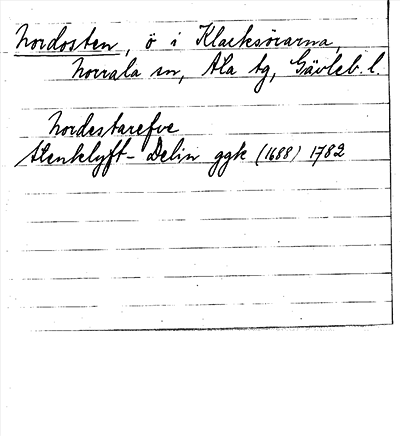 Nordosten, ö i Klacksörarna,
Norrala sn, Ala tg, Gävleb. l.
Nordostarefve
Stenklyft-Delin ggk (1688) 1782